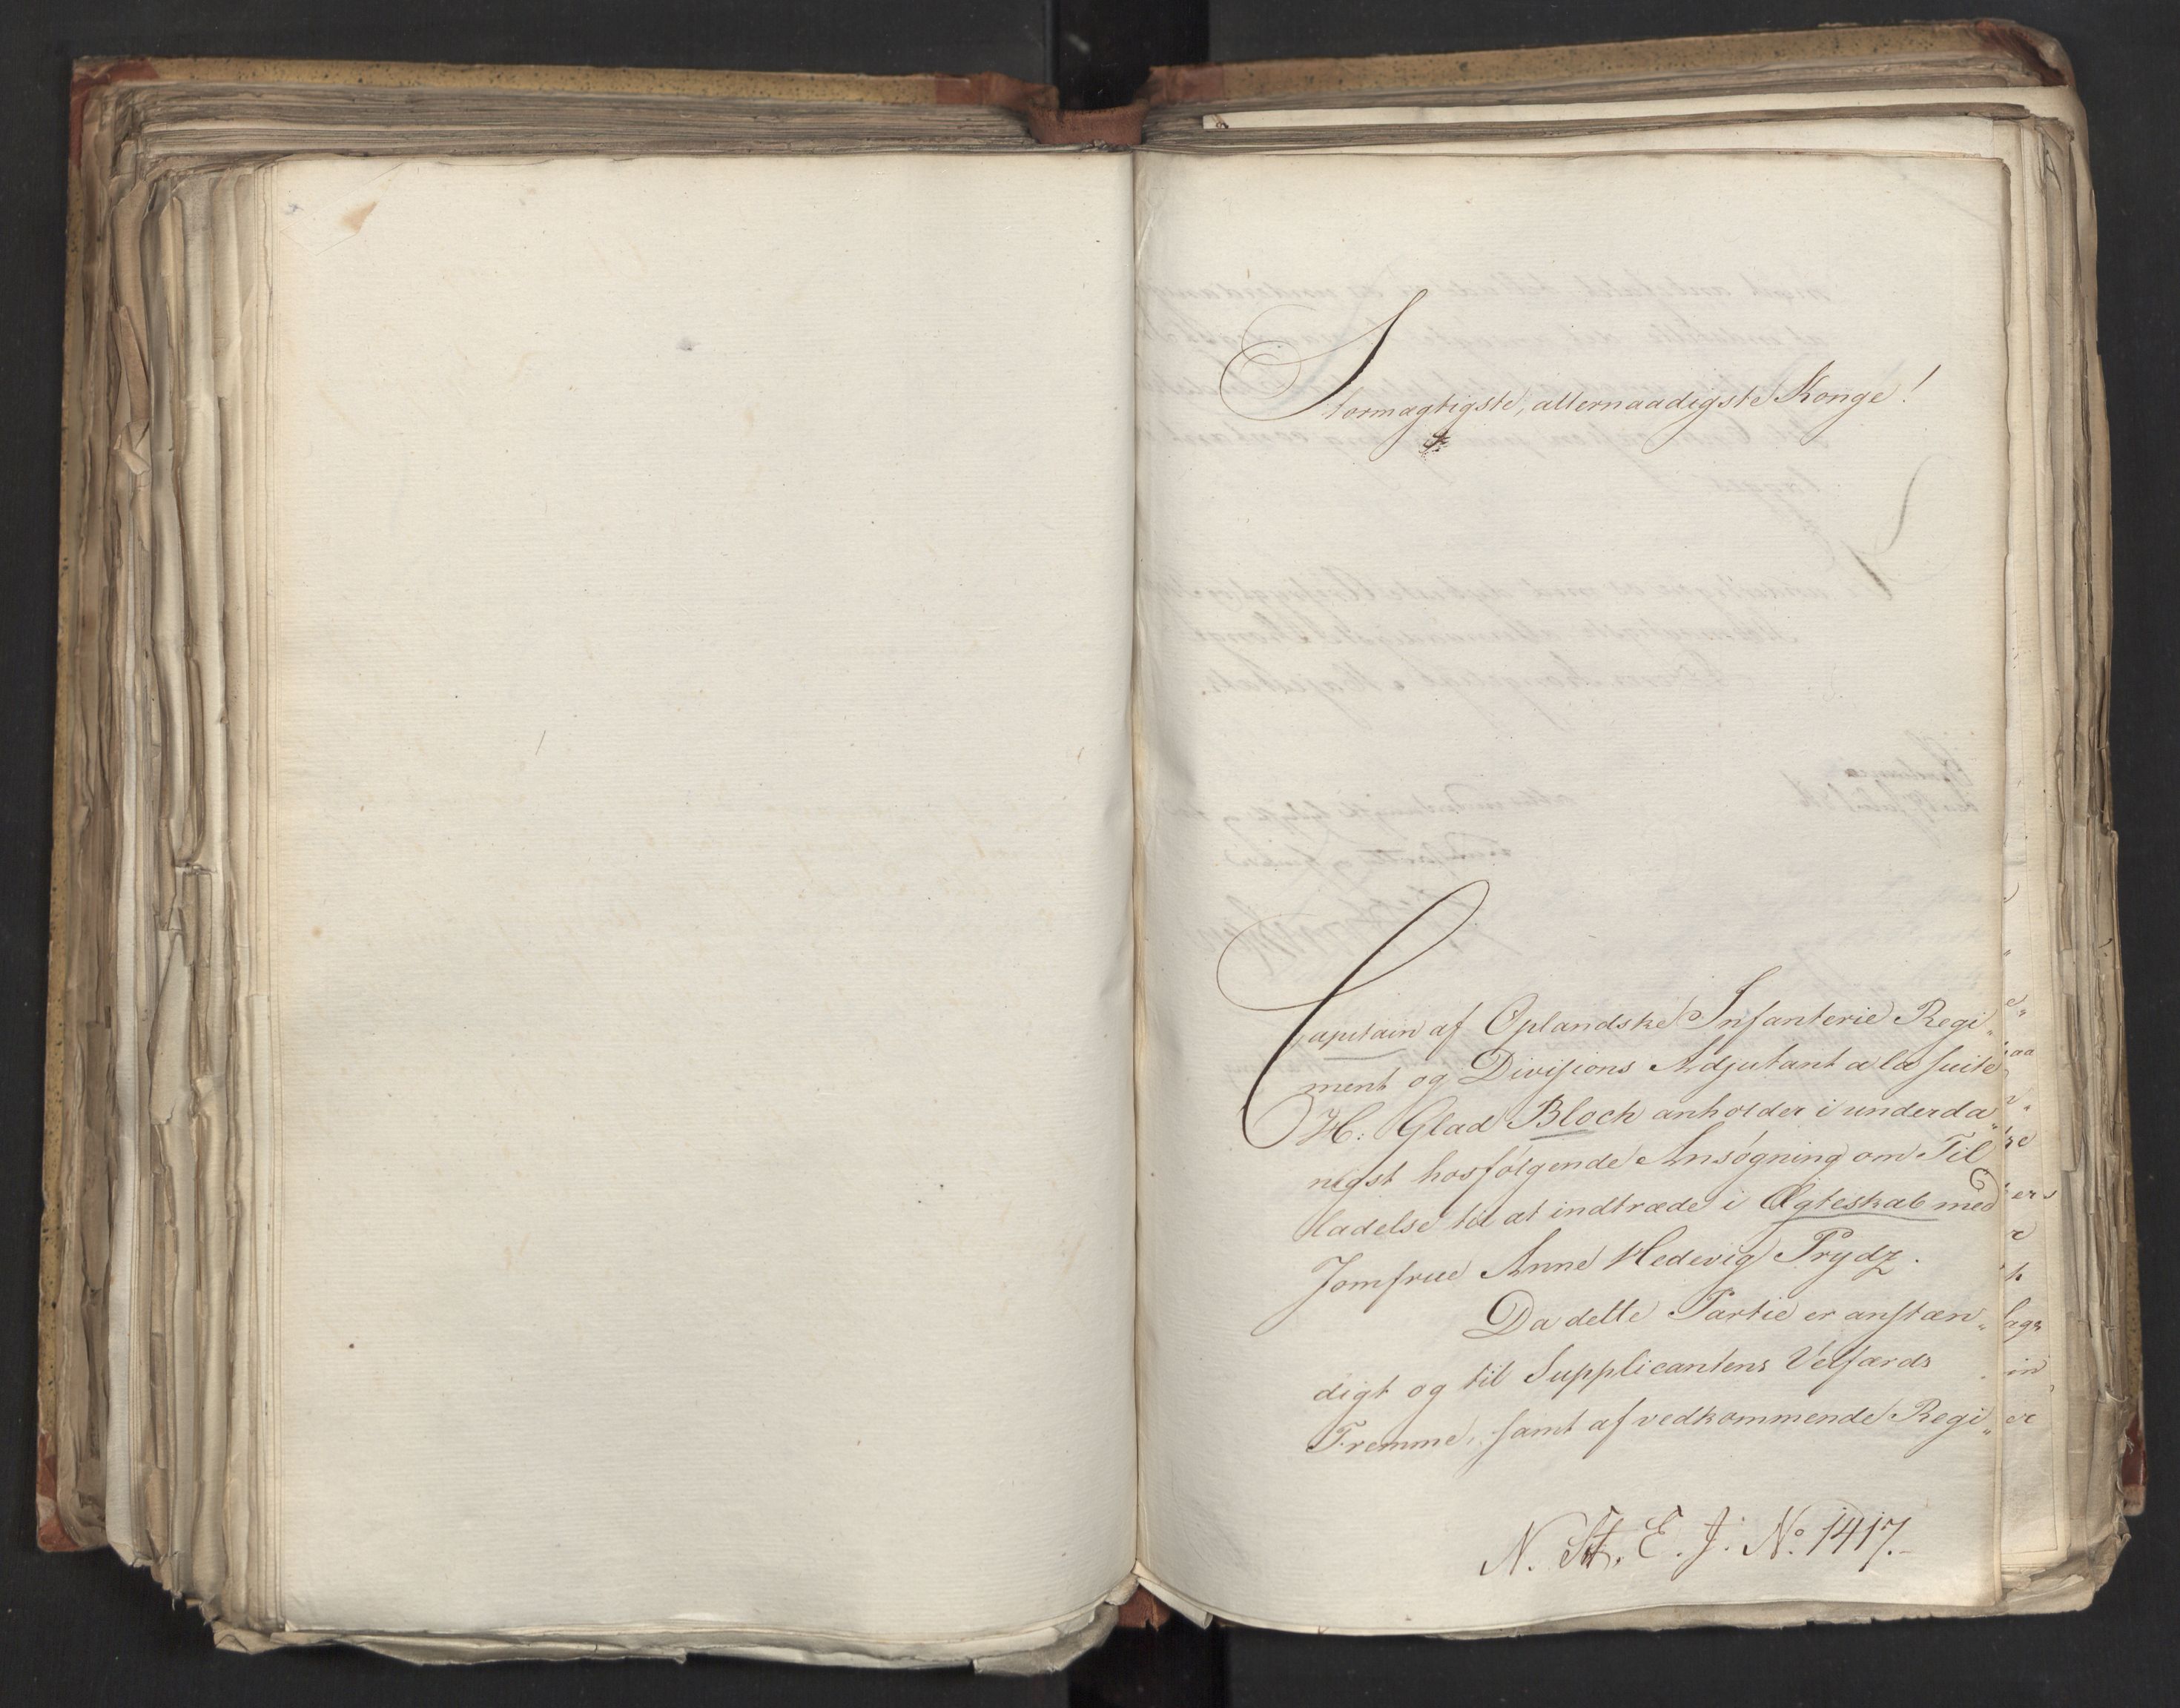 Stormagtigste, allernaadigste Konge!
Capitain af Oplandske Infanterie Regi„
ment og Divisions Adjutant a la suite
H: Glad Bloch anholder i underda„
nigst hosfølgende Ansøgning om Til„
ladelse til at indtræde i Ægteskab med
Jomfrue Anne Hedevig Prydz.
Da dette Partie er anstæn„
digt og til Supplicantens Velfærds
Fremme, samt af vedkommende Regi„
N. St. E. J. No. 1417.